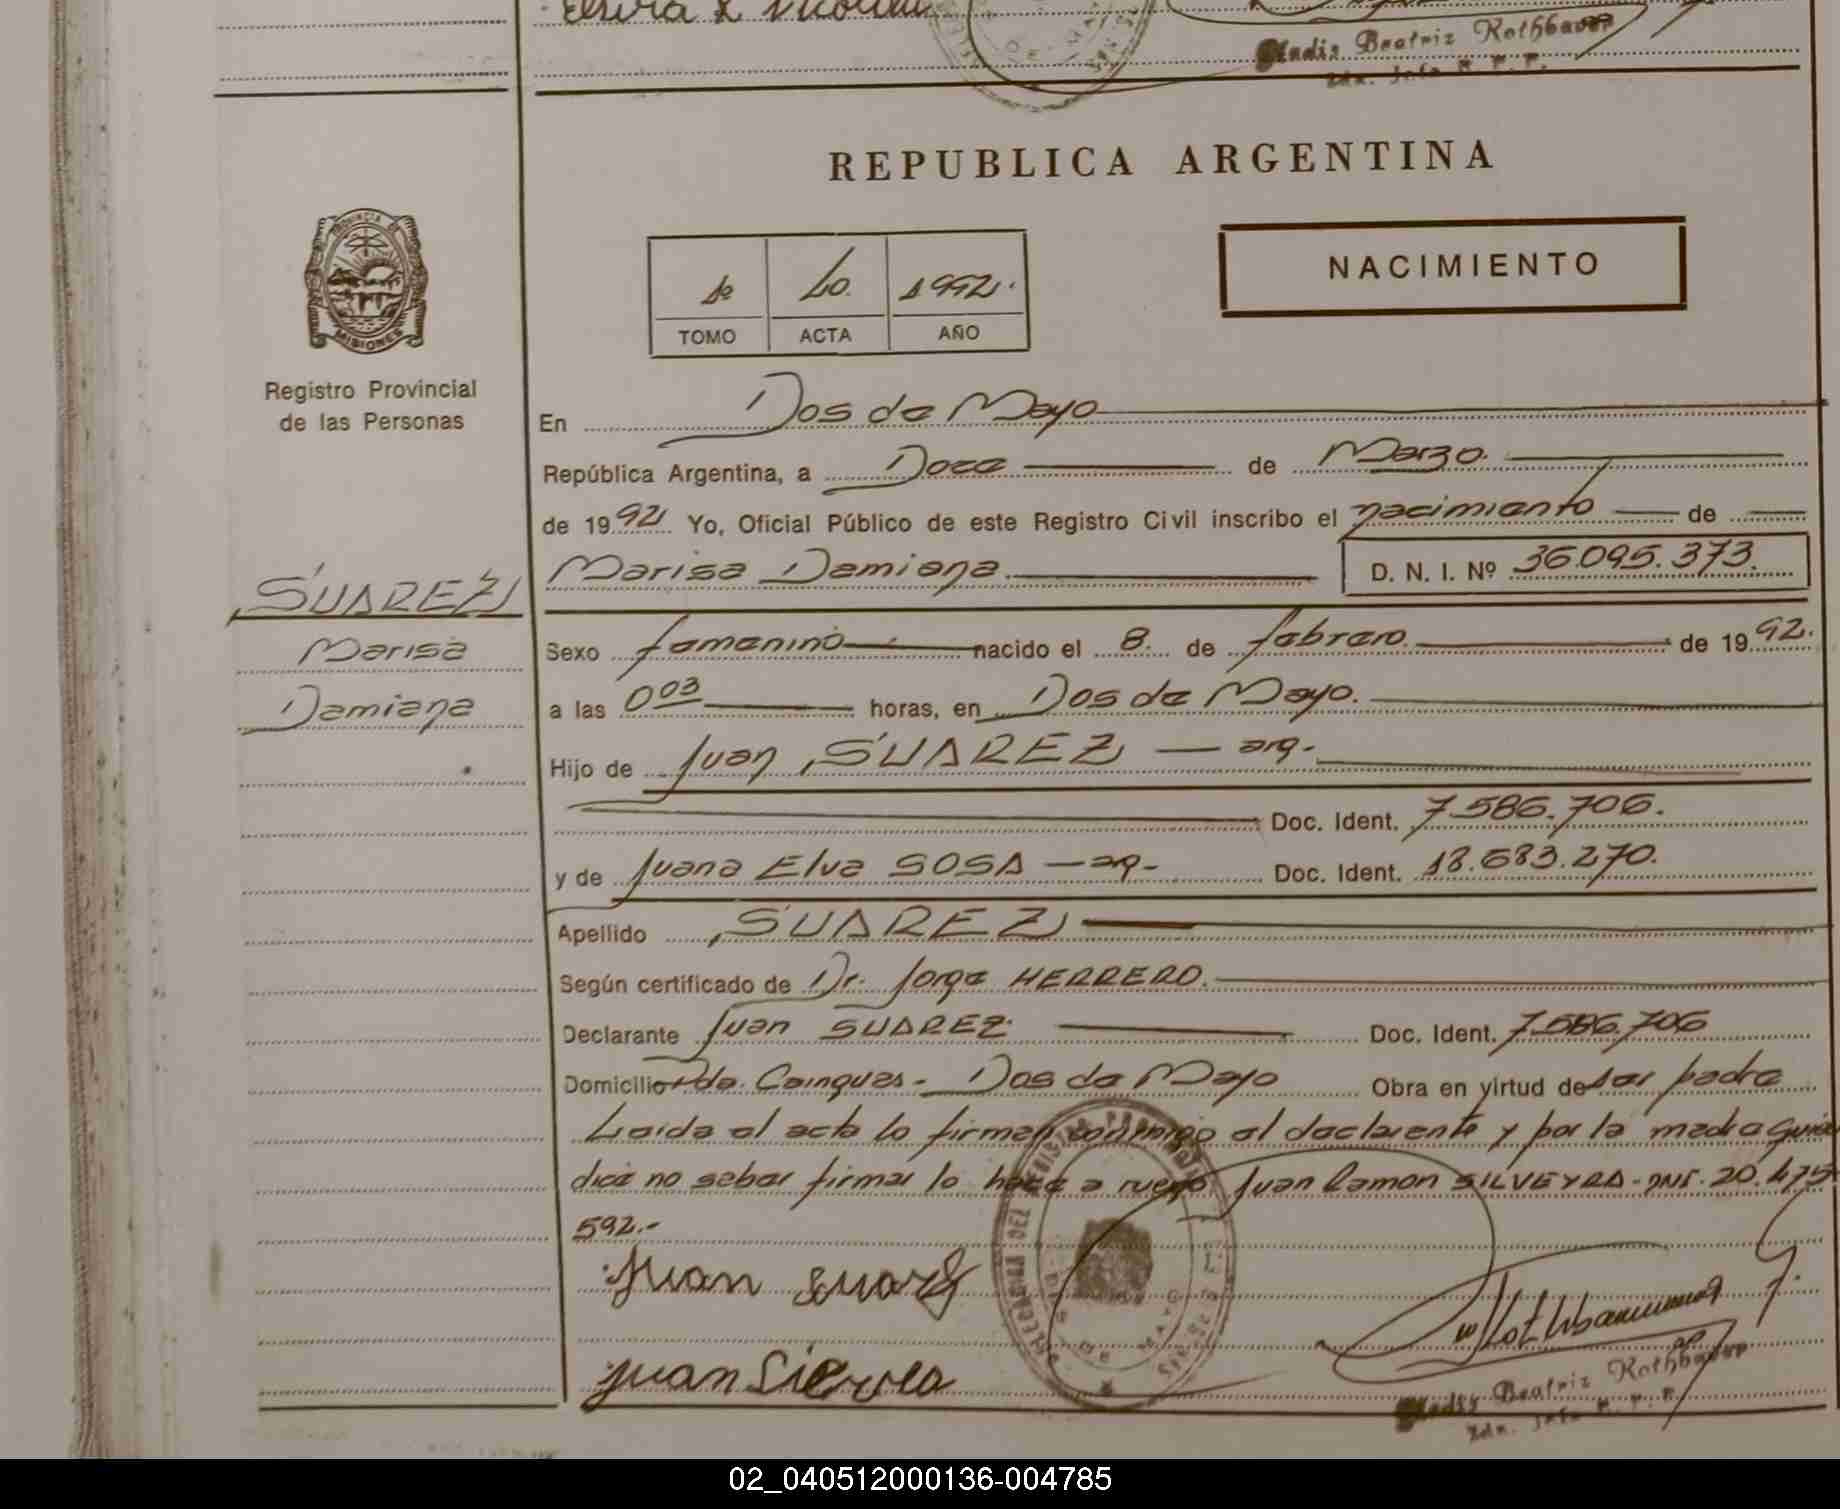 Gladis Beatriz Rothbauer
REPUBLICA ARGENTINA
PROVINCIA DE
MISIONES
Registro Provincial
de las Personas
1º 40. 1992.
TOMO ACTA AÑO
NACIMIENTO
En Dos de Mayo
República Argentina, a Doce de Marzo.
de 1992 Yo, Oficial Público de este Registro Civil inscribo el nacimiento de
SUAREZ
Marisa
Damiana
Marisa Damiana. D. N. I. Nº 36.095.373.
Sexo femenino nacido el 8. de febrero. de 1992.
a las 0 03 horas, en Dos de Mayo.
Hijo de Juan SUAREZ — arg.
Doc. Ident. 7.586.706.
y de Juana Elva SOSA — arg- Doc. Ident. 18.683.270.
Apellido SUAREZ
Según certificado de Dr. Jorge HERRERO.
Declarante Juan SUAREZ. Doc. Ident. 7.586.706
Domicilio Pda. Cainguas.- Dos de Mayo Obra en virtud de ser padre
Leída el acta lo firman conmigo el declarante y por la madre quien
dice no saber firmar lo hace a ruego Juan Ramon SILVEYRA. DNI. 20.475
592.-
Juan Suarez
Juan
DOS DE MAYO
Gladis Beatriz Rothbauer
02_040512000136-004785